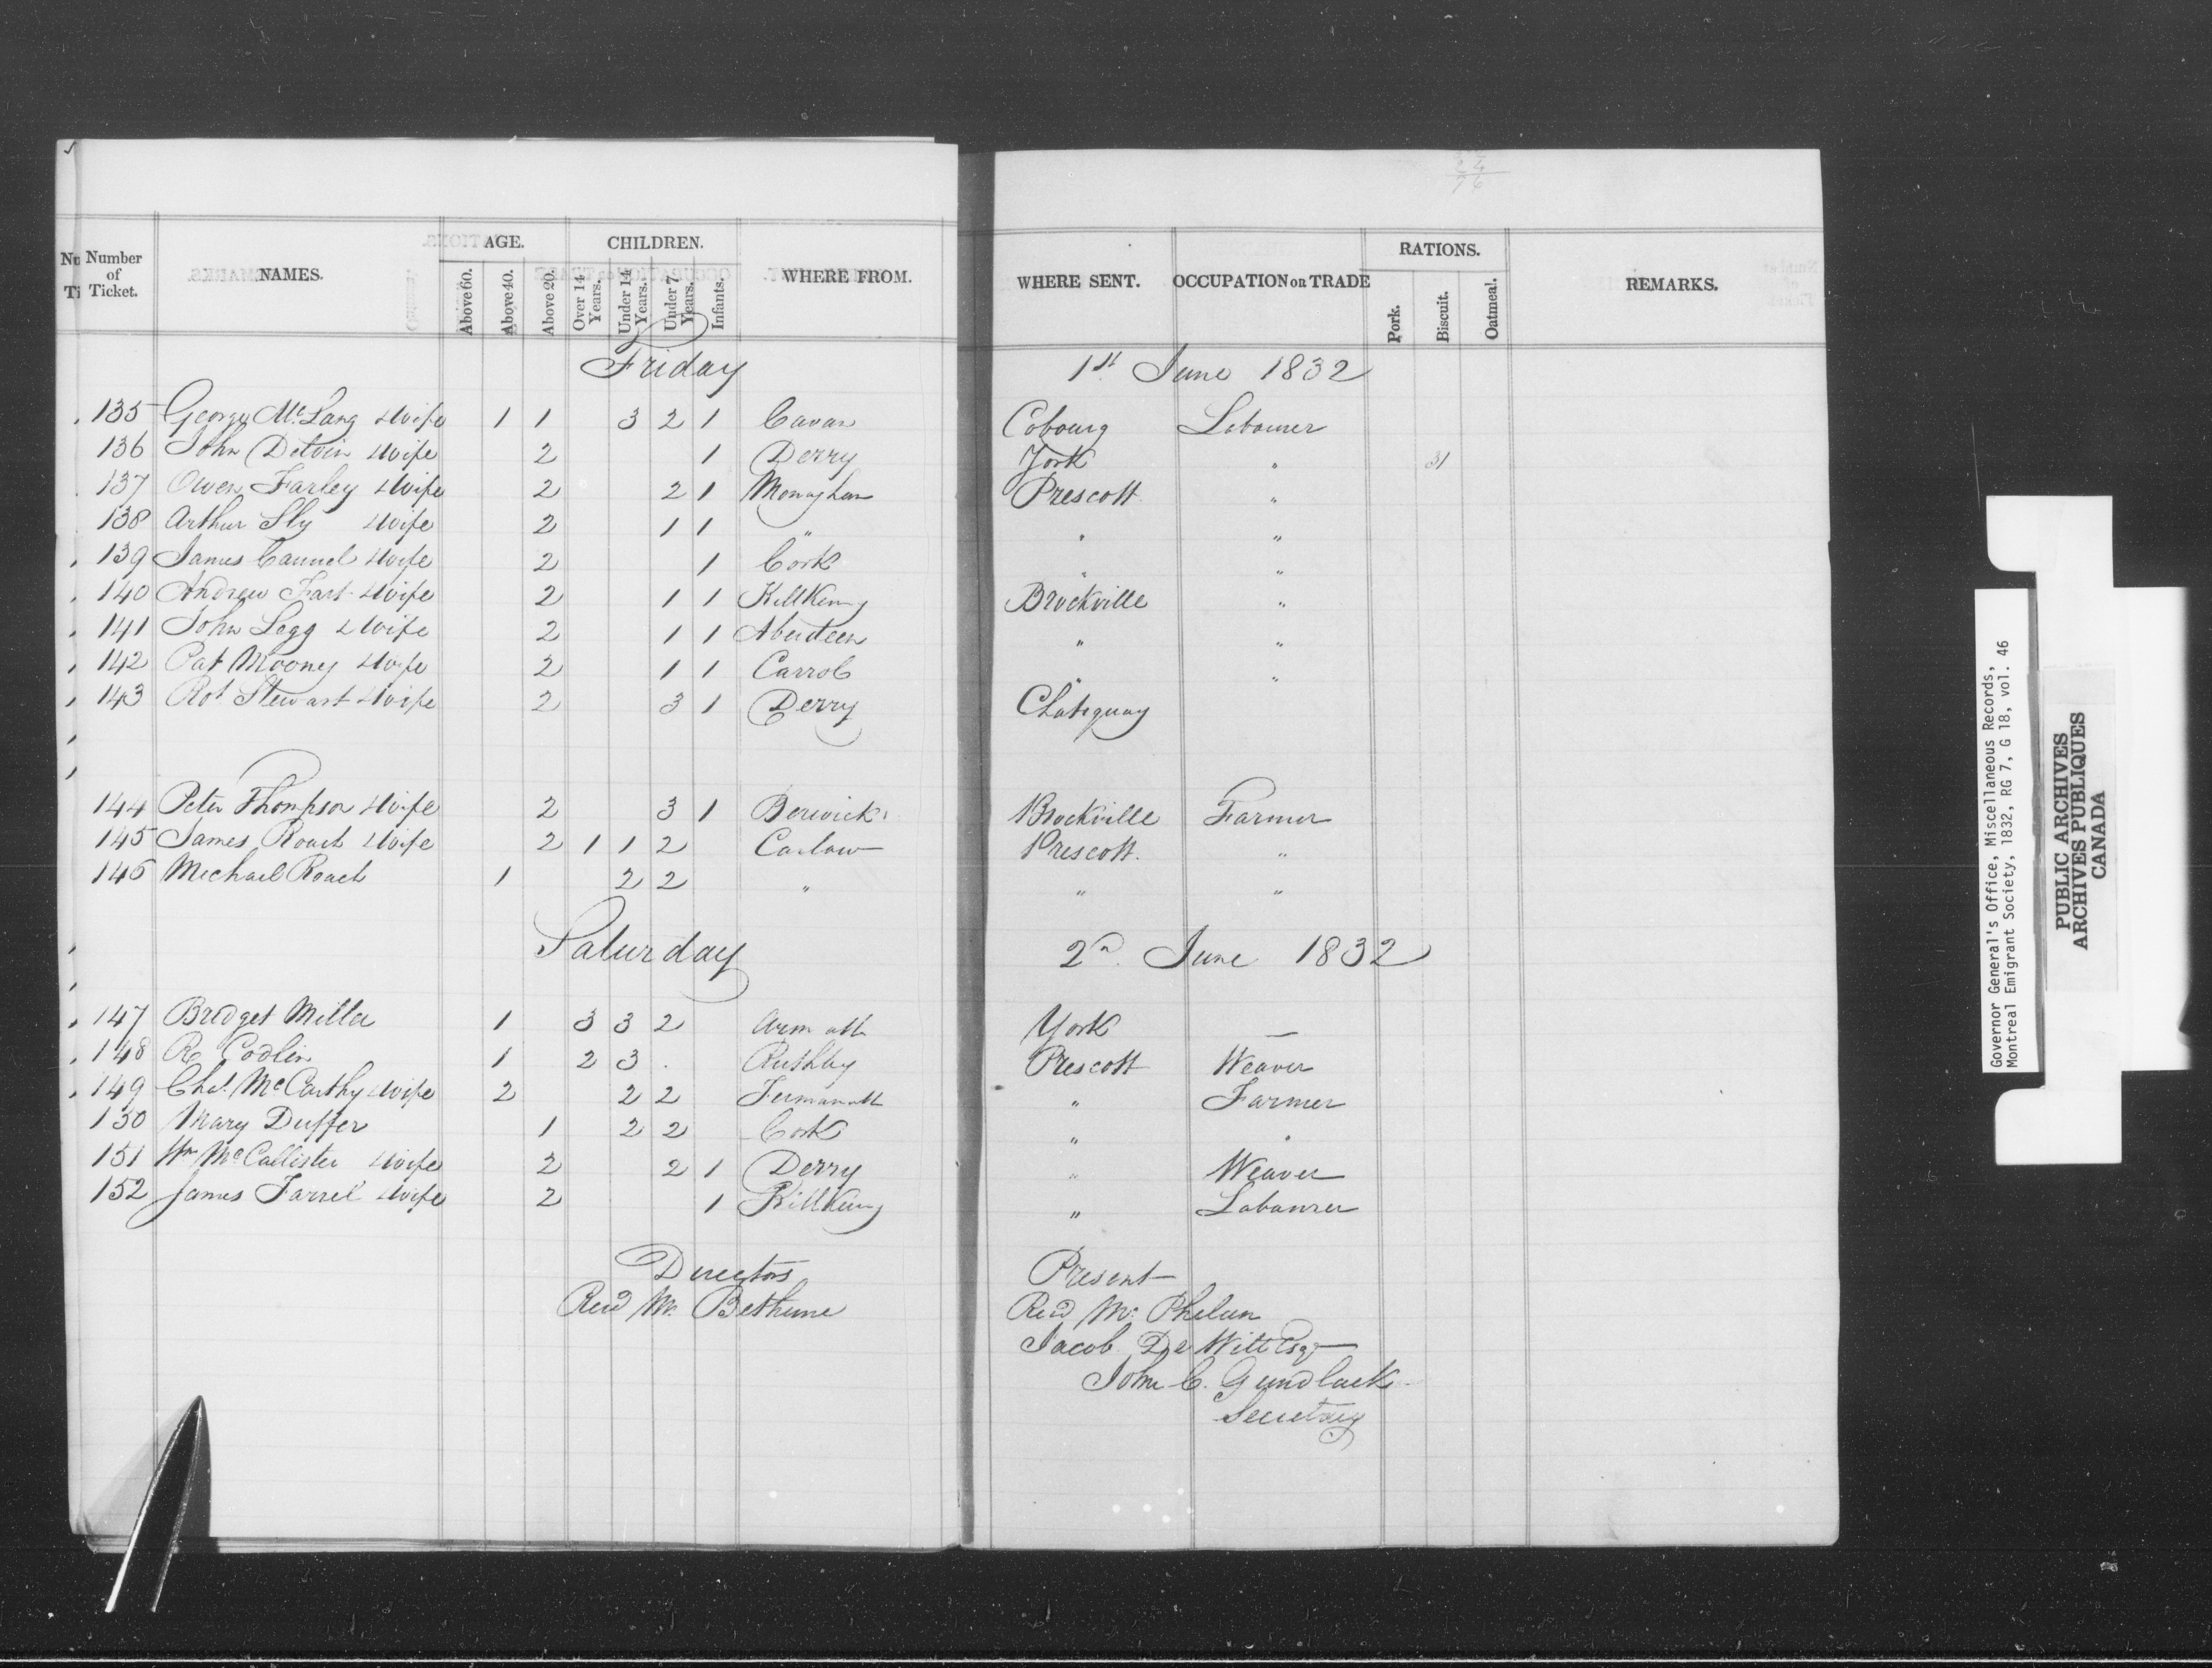 Number of Ticket. NAMES. AGE. Above 60. Above 40. Above 20. CHILDREN. Over 14 Years. Under 14 Years. Under 7 Years. Infants. WHERE FROM. WHERE SENT. OCCUPATION OR TRADE RATIONS. Pork. Biscuit. Oatmeal. REMARKS.
Friday 1st June 1832
135 George McLang & Wife 1 1 3 2 1 Cavan Cobourg Labourer
136 John Detvin & Wife 2 1 Derry York " 31
137 Owen Farley & Wife 2 2 1 Monaghan Prescott "
138 Arthur Sly & Wife 2 1 1 " " "
139 James Caunel & Wife 2 1 Cork " "
140 Andrew Fart & Wife 2 1 1 Killkenny Brockville "
141 John Legg & Wife 2 1 1 Aberdeen " "
142 Pat Mooney & Wife 2 1 1 Carrol " "
143 Rot Stewart & Wife 2 3 1 Derry Chateguay
144 Peter Thompson & Wife 2 3 1 Berwick Brockville Farmer
145 James Roach & Wife 2 1 1 2 Carlow Prescott. "
146 Michael Roach 1 2 2 " " "
Saturday 2d. June 1832
147 Bridget Miller 1 3 3 2 Armath York —
148 R Codlin 1 2 3 Prescott Weaver
149 Chs. McCarthy & Wife 2 2 2 Fermanath " Farmer
150 Mary Duffer 1 2 2 Cork " "
151 Wm McCallister & Wife 2 2 1 Derry " Weaver
152 James Farrel & Wife 2 1 Killkenny " Labourer
Directors Present
Revd Mr. Bethune Revd Mr. Phelan
Jacob De Witt Esqr
John C. Gundlack
Secretary
Governor General's Office, Miscellaneous Records,
Montreal Emigrant Society, 1832, RG 7, G 18, vol. 46
PUBLIC ARCHIVES
ARCHIVES PUBLIQUES
CANADA